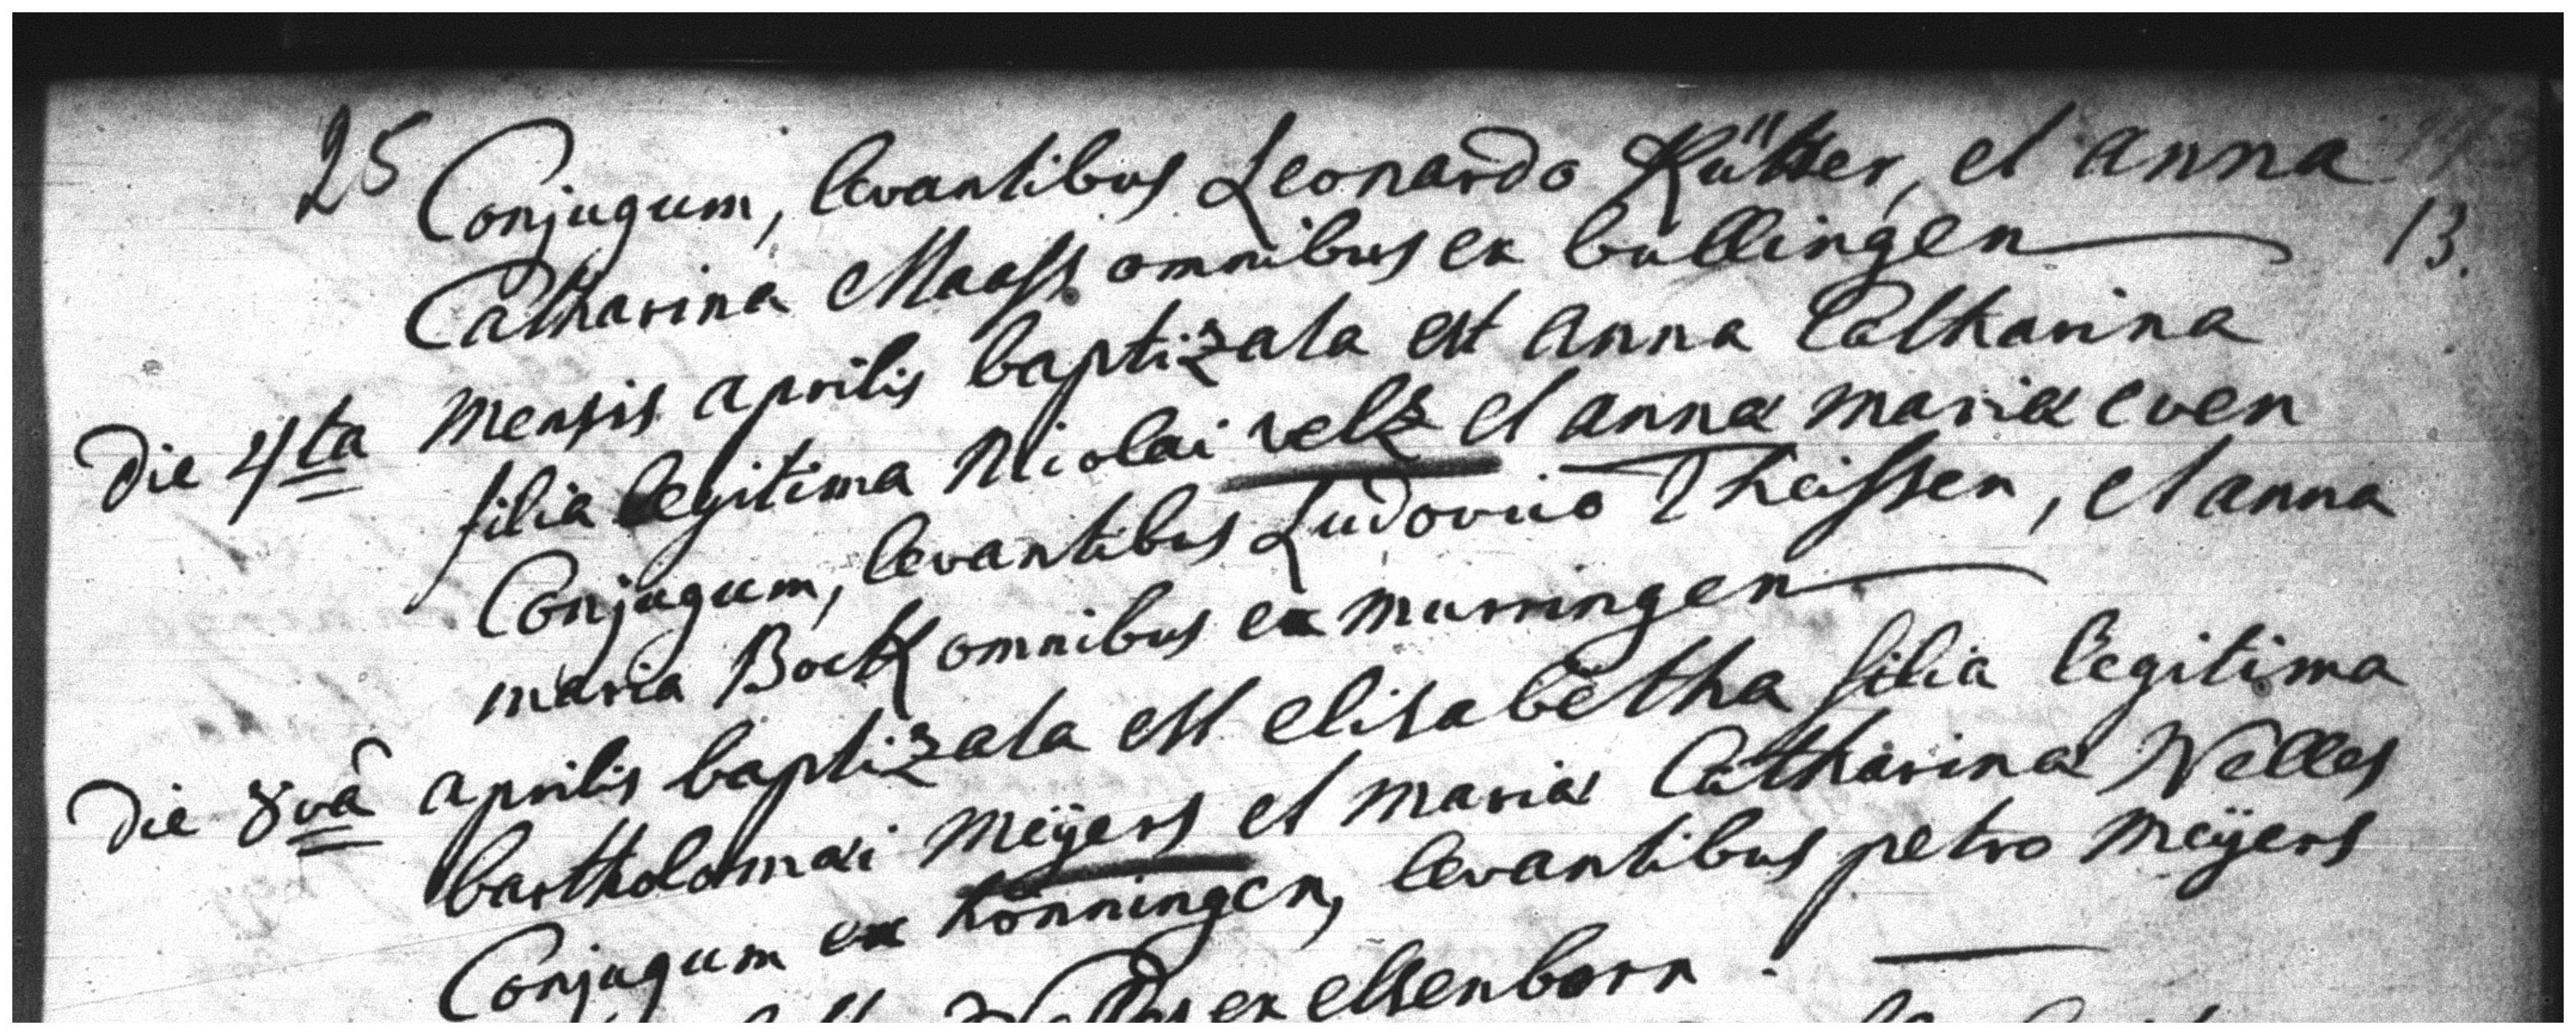 25 Conjugum, levantibus Leonardo Kütter, et anna
Catharina Maass omnibus ex bullingen 13.
Die 4ta mensis aprilis baptizata est anna Catharina
filia legitima Nicolai velz et annæ mariæ even
Conjugum, levantibus Ludovico Theissen, et anna
maria Bock omnibus ex murringen
Die 8va aprilis baptizata est elisabetha filia legitima
bartholomæi meÿers et mariæ Catharinæ Nelles
Conjugum ex hönningen, levantibus petro meÿers
Nelles ex elsenborn.